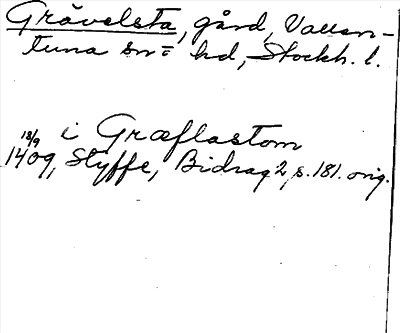 Grävelsta, gård, Vallen-
tuna sn = hd, Stockh. l.
i Græflastom
18/9
1409, Styffe, Bidrag 2, s. 181. orig.